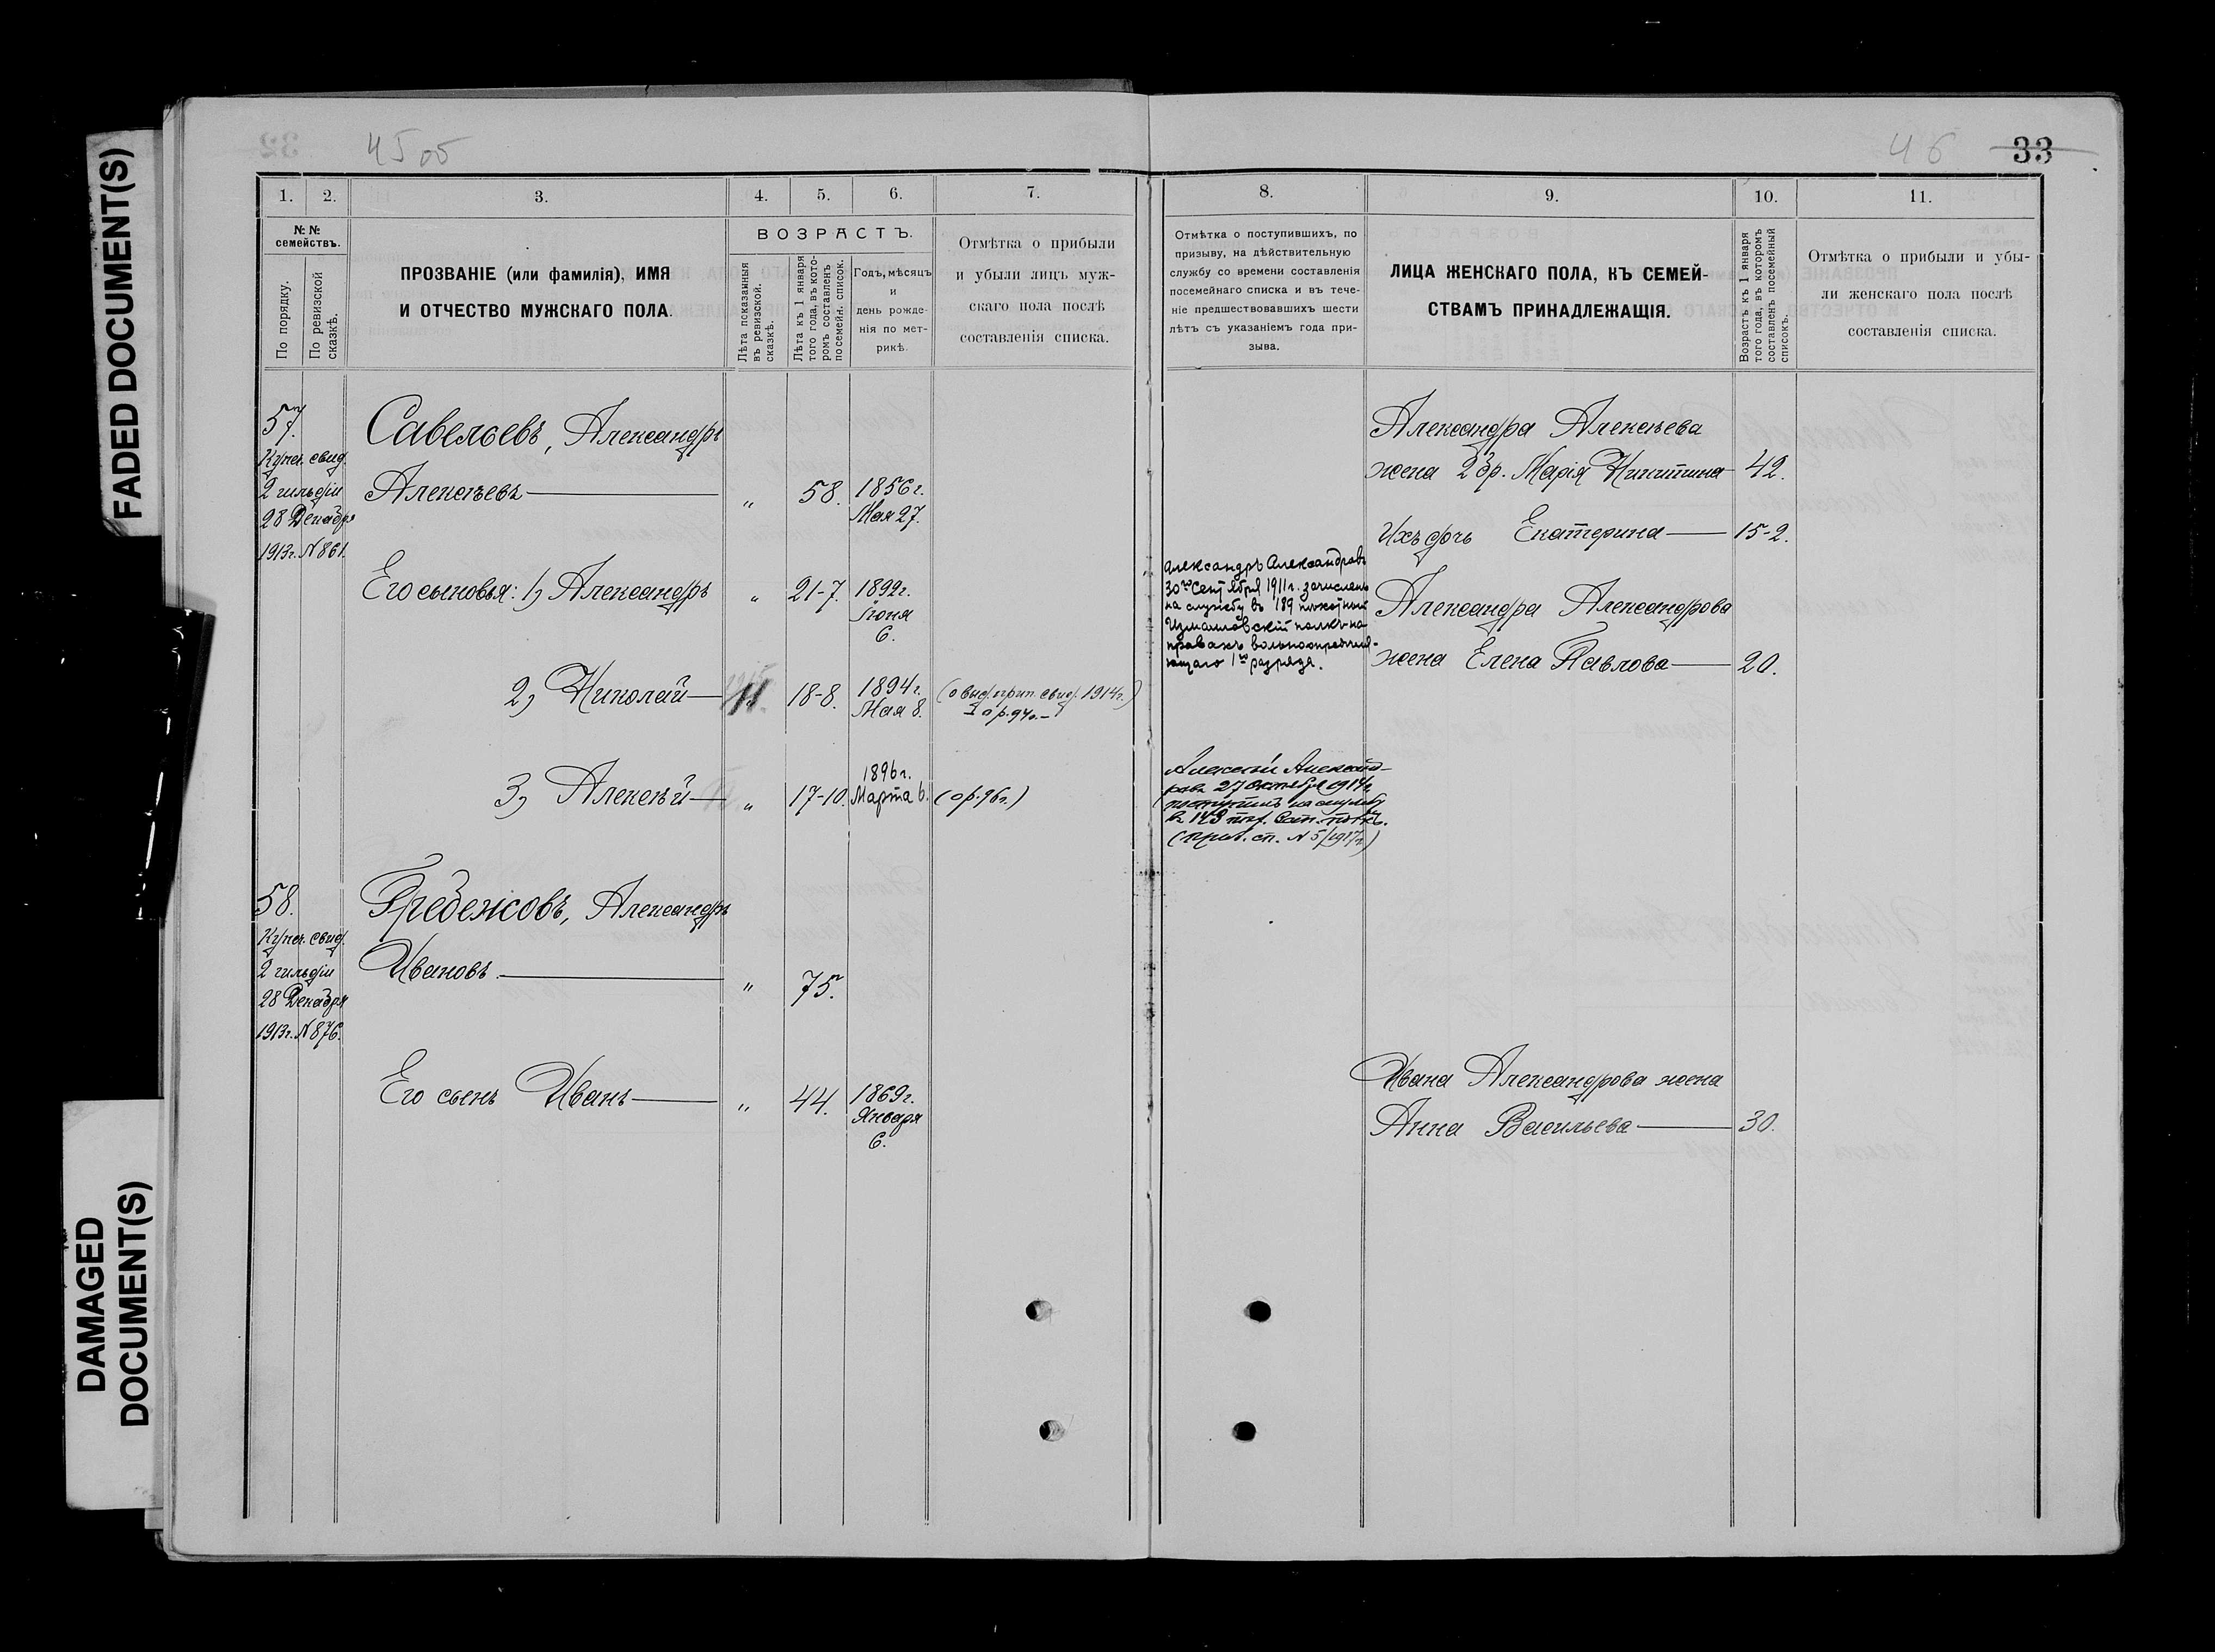 FADED DOCUMENT(S)
DAMAGED
DOCUMENT(S)
45 об
1. 2. 3. 4. 5. 6. 7.
№ №
семействъ.
По порядку.
По ревизской
сказкѣ.
ПРОЗВАНІЕ (или фамилія), ИМЯ
И ОТЧЕСТВО МУЖСКАГО ПОЛА.
ВОЗРАСТЪ.
Лѣта показанныя
въ ревизской.
сказкѣ.
Лѣта къ 1 января
того года, въ кото-
ромъ составленъ
посемейн. список.
Годъ, мѣсяцъ
и
день рожде-
нія по мет-
рикѣ.
Отмѣтка о прибыли
и убыли лицъ муж-
скаго пола послѣ
составленія списка.
57.
Купеч. свид.
2 гильдіи
28 Декабря
1913г. N 861.
Савельевъ, Александръ
Алексѣевъ — „ 58. 1856г.
Мая 27.
Его сыновья: 1) Александръ „ 21-7. 1892г.
Іюня
6.
2) Николай — 18-8. 1894г.
Мая 8.
(о выд. прип. свид. 1914г.)
3) Алексѣй — „ 17-10. 1896г.
Марта 6. (ф. 96г.)
58.
Купеч. свид.
2 гильдіи
28 Декабря
1913г. N 876.
Гребенсовъ, Александръ
Ивановъ. — „ 75.
Его сынъ Иванъ — „ 44. 1869г.
Января
6.
46 33
8. 9. 10. 11.
Отмѣтка о поступившихъ, по
призыву, на дѣйствительную
службу со времени составленія
посемейнаго списка и въ тече-
ніе предшествовавшихъ шести
лѣтъ съ указаніемъ года при-
зыва.
ЛИЦА ЖЕНСКАГО ПОЛА, КЪ СЕМЕЙ-
СТВАМЪ ПРИНАДЛЕЖАЩІЯ.
Возрастъ къ 1 января
того года, въ которомъ
составленъ посемейный
списокъ.
Отмѣтка о прибыли и убы-
ли женскаго пола послѣ
составленія списка.
Александра Алексѣева
жена 2 бр. Марія Никитина 42.
Ихъ дочь Екатерина — 15-2.
Александръ Александровъ
30го Сентября 1911г. зачисленъ
на службу въ 189 пѣхотный
Измаиловскій полкъ на
правахъ вольноопредѣля-
ющаго 1го разряда.
Александра Александрова
жена Елена Павлова — 20.
Алексѣй Александ-
ровъ 27 Октября 1914г.
поступилъ на службу
в
(приз. сп. N 5/1917г)
Ивана Александрова жена
Анна Васильева — 30.